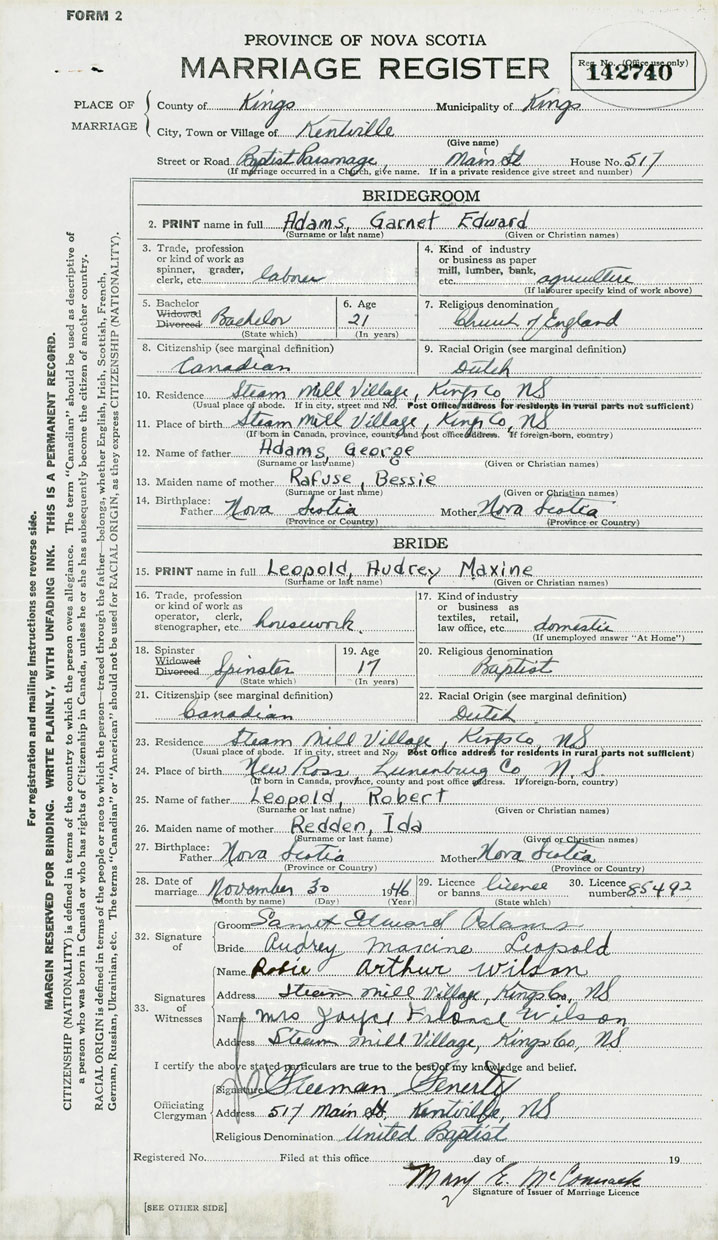 FORM 2
PROVINCE OF NOVA SCOTIA
MARRIAGE REGISTER
Reg. No. (Office use only)
142740
PLACE OF MARRIAGE
County of Kings Municipality of Kings
City, Town or Village of Kentville
(Give name)
Street or Road Baptist Parsonage, Main St House No. 517
(If marriage occurred in a Church, give name. If in a private residence give street and number)
BRIDEGROOM
2. PRINT name in full Adams, Garnet Edward
(Surname or last name) (Given or Christian names)
3. Trade, profession or kind of work as spinner, grader, clerk, etc. laborer
4. Kind of industry or business as paper mill, lumber, bank, etc. agriculture
(If labourer specify kind of work above)
5. Bachelor Widowed Divorced Bachelor
(State which)
6. Age 21
(In years)
7. Religious denomination
Church of England
8. Citizenship (see marginal definition)
Canadian
9. Racial Origin (see marginal definition)
Dutch
10. Residence Steam Mill Village, Kings Co, NS
(Usual place of abode. If in city, street and No. Post Office address for residents in rural parts not sufficient)
11. Place of birth Steam Mill Village, Kings Co, NS
(If born in Canada, province, county and post office address. If foreign-born, country)
12. Name of father Adams, George
(Surname or last name) (Given or Christian names)
13. Maiden name of mother Rafuse, Bessie
(Surname or last name) (Given or Christian names)
14. Birthplace: Father Nova Scotia Mother Nova Scotia
(Province or Country) (Province or Country)
BRIDE
15. PRINT name in full Leopold, Audrey Maxine
(Surname or last name) (Given or Christian names)
16. Trade, profession or kind of work as operator, clerk, stenographer, etc. housework
17. Kind of industry or business as textiles, retail, law office, etc. domestic
(If unemployed answer "At Home")
18. Spinster Widowed Divorced Spinster
(State which)
19. Age 17
(In years)
20. Religious denomination
Baptist
21. Citizenship (see marginal definition)
Canadian
22. Racial Origin (see marginal definition)
Dutch
23. Residence Steam Mill Village, Kings Co, NS
(Usual place of abode. If in city, street and No. Post Office address for residents in rural parts not sufficient)
24. Place of birth New Ross, Lunenburg Co, N.S.
(If born in Canada, province, county and post office address. If foreign-born, country)
25. Name of father Leopold, Robert
(Surname or last name) (Given or Christian names)
26. Maiden name of mother Redden, Ida
(Surname or last name) (Given or Christian names)
27. Birthplace: Father Nova Scotia Mother Nova Scotia
(Province or Country) (Province or Country)
28. Date of marriage November 30 1946
(Month by name) (Day) (Year)
29. Licence or banns license
(State which)
30. Licence number 85492
32. Signature of
Groom Garnet Edward Adams
Bride Audrey maxine Leopold
33. Signatures of Witnesses
Name Robie Arthur Wilson
Address Steam Mill Village, Kings Co, NS
Name Mrs Joyce Wilson
Address Steam Mill Village, Kings Co, NS
I certify the above stated particulars are true to the best of my knowledge and belief.
Officiating Clergyman
Signature Freeman Fenerty
Address 517 Main St. Kentville, NS
Religious Denomination United Baptist
Registered No. Filed at this office day of 19
Mary E. McCormack
Signature of Issuer of Marriage Licence
[SEE OTHER SIDE]
For registration and mailing instructions see reverse side.
MARGIN RESERVED FOR BINDING. WRITE PLAINLY, WITH UNFADING INK. THIS IS A PERMANENT RECORD.
CITIZENSHIP (NATIONALITY) is defined in terms of the country to which the person owes allegiance. The term "Canadian" should be used as descriptive of
a person who was born in Canada or who has rights of Citizenship in Canada, unless he or she has subsequently become the citizen of another country.
RACIAL ORIGIN is defined in terms of the people or race to which the person—traced through the father—belongs, whether English, Irish, Scottish, French,
German, Russian, Ukrainian, etc. The terms "Canadian" or "American" should not be used for RACIAL ORIGIN, as they express CITIZENSHIP (NATIONALITY).